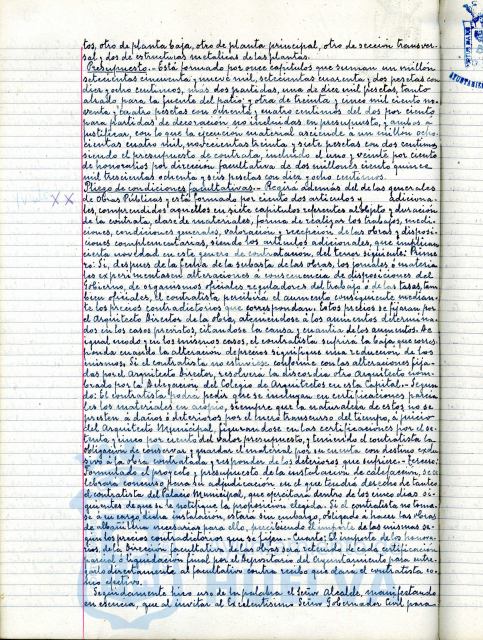 tos, otro de planta baja, otro de planta principal, otro de sección transver-
sal y dos de estructuras metálicas de las plantas.
Presupuesto.- Está formado por once capítulos que suman un millón
setecientas cincuenta y nueve mil, setecientas cuarenta y dos pesetas con
diez y ocho centimos, más dos partidas, una de diez mil pesetas, tanto
alzado para la fuente del patio y otra de treinta y cinco mil ciento no-
venta y cuatro pesetas con ochenta y cuatro centimos del dos por ciento
para partidas de decoración no incluidas en presupuesto, y ambas a
justificar, con lo que la ejecución material asciende a un millón ocho-
cientas cuatro mil, novecientas treinta y siete pesetas con dos centimos
siendo el presupuesto de contrata, incluido el uno y veinte por ciento
de honorarios por dirección facultativa, de dos millones ciento quince
mil trescientas ochenta y seis pesetas con diez y ocho centimos.
Pliego de condiciones facultativas.- Regirá además del de las generales
de Obras Públicas y está formado por ciento dos artículos y adiciona-
les, comprendidos aquellos en siete capítulos referentes al objeto y duración
de la contrata, clase de materiales, forma de realizar los trabajos, medi-
ciones, condiciones generales, valoración y recepción de las obras y disposi-
ciones complementarias, siendo los artículos adicionales, que implican
cierta novedad en este género de contratación, del tenor siguiente: Prime-
ro: Si, después de la fecha de la subasta de las obras, los jornales o materia-
les experimentasen alteraciones a consecuencia de disposiciones del
Gobierno, de organismos oficiales reguladores del trabajo o de las tasas, tam-
bien oficiales, el contratista percibirá el aumento consiguiente median-
te los precios contradictorios que correspondan. Estos precios se fijarán por
el Arquitecto Director de la obra, ateniendose a los aumentos determina-
dos en los casos previstos, citandose la causa y cuantía de los aumentos. De
igual modo y en los mismos casos, el contratista sufrirá la baja que corres-
ponda cuando la alteración de precios signifique una reducción de los
mismos. Si el contratista no estuviese conforme con las alteraciones fija-
das por el Arquitecto Director, resolverá la discordia otro Arquitecto nom-
brado por la Delegación del Colegio de Arquitectos en esta Capital.- Segun-
do: El contratista podrá pedir que se incluyan en certificaciones parcia-
les los materiales en acopio, siempre que la naturaleza de estos no se
presten a daños o deterioros por el mero transcurso del tiempo, a juicio
del Arquitecto Municipal, figurandose en las certificaciones por el se-
tenta y cinco por ciento del valor presupuesto, y teniendo el contratista la
obligación de conservar y guardar el material por su cuenta con destino exclu-
sivo a la obra contratada y responder de los deterioros que sufriere.- Tercero:
Formulado el proyecto y presupuesto de la instalación de calefacción, se ce-
lebrará concurso para su adjudicación en el que tendrá derecho de tanteo
el contratista del Palacio Municipal, que ejercitará dentro de los cinco días si-
guientes de que se le notifique la proposición elegida. Si el contratista no toma-
se a su cargo dicha instalación, estará sin embargo, obligado a hacer las obras
de albañilería necesarias para ello, percibiendo el importe de las mismas se-
gún los precios contradictorios que se fijen.- Cuarto: El importe de los honora-
rios, de la Dirección facultativa de las obras será retenido de cada certificación
parcial o liquidación final por el Depositario del Ayuntamiento para entre-
garlo directamente al facultativo contra recibo que dará el contratista co-
mo efectivo.
Seguidamente hizo uso de la palabra el Señor Alcalde, manifestando
en esencia, que al invitar al Excelentísimo Señor Gobernador Civil para